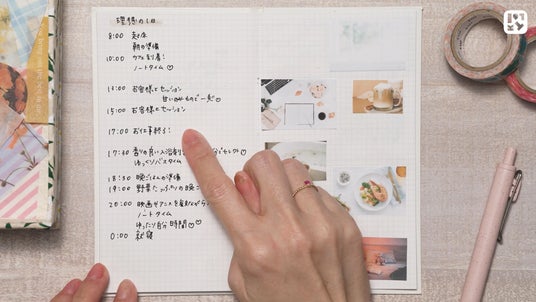 理想の1日
8:00 起床
朝の準備
10:00 カフェ到着!
ノートタイム♡
お客様とセッション
甘いのみもので一息♡
15:00 お客様とセッション
17:00 お仕事終了!
17:30 香りの良い入浴剤
セレクト♡
ゆっくりバスタイム
18:30 晩ごはんの準備
19:00 野菜たっぷりの晩ご
20:00 映画やアニメを見ながら
ノートタイム
ゆったり自分時間♡♡
0:00 就寝